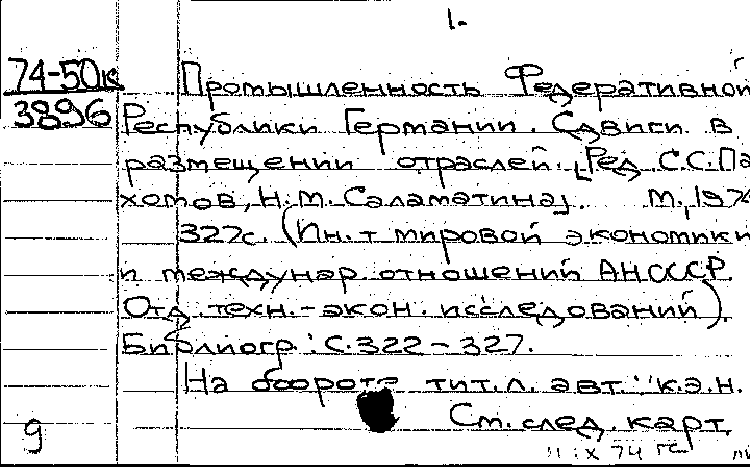 1.
74-50к
3896
Промышленность Федеративной
Республики Германии. Сдвиги в
размещении отраслей. [Ред. С.С. Па
хомов, Н.М. Саламатина]. М., 197
327с. (Ин-т мировой экономики
и междунар. отношений АН СССР.
Отд. техн.-экон. исследований).
Библиогр.: С. 322-327.
На обороте тит. л. авт.: к.э.н.
См. след. карт.
9
IX 74